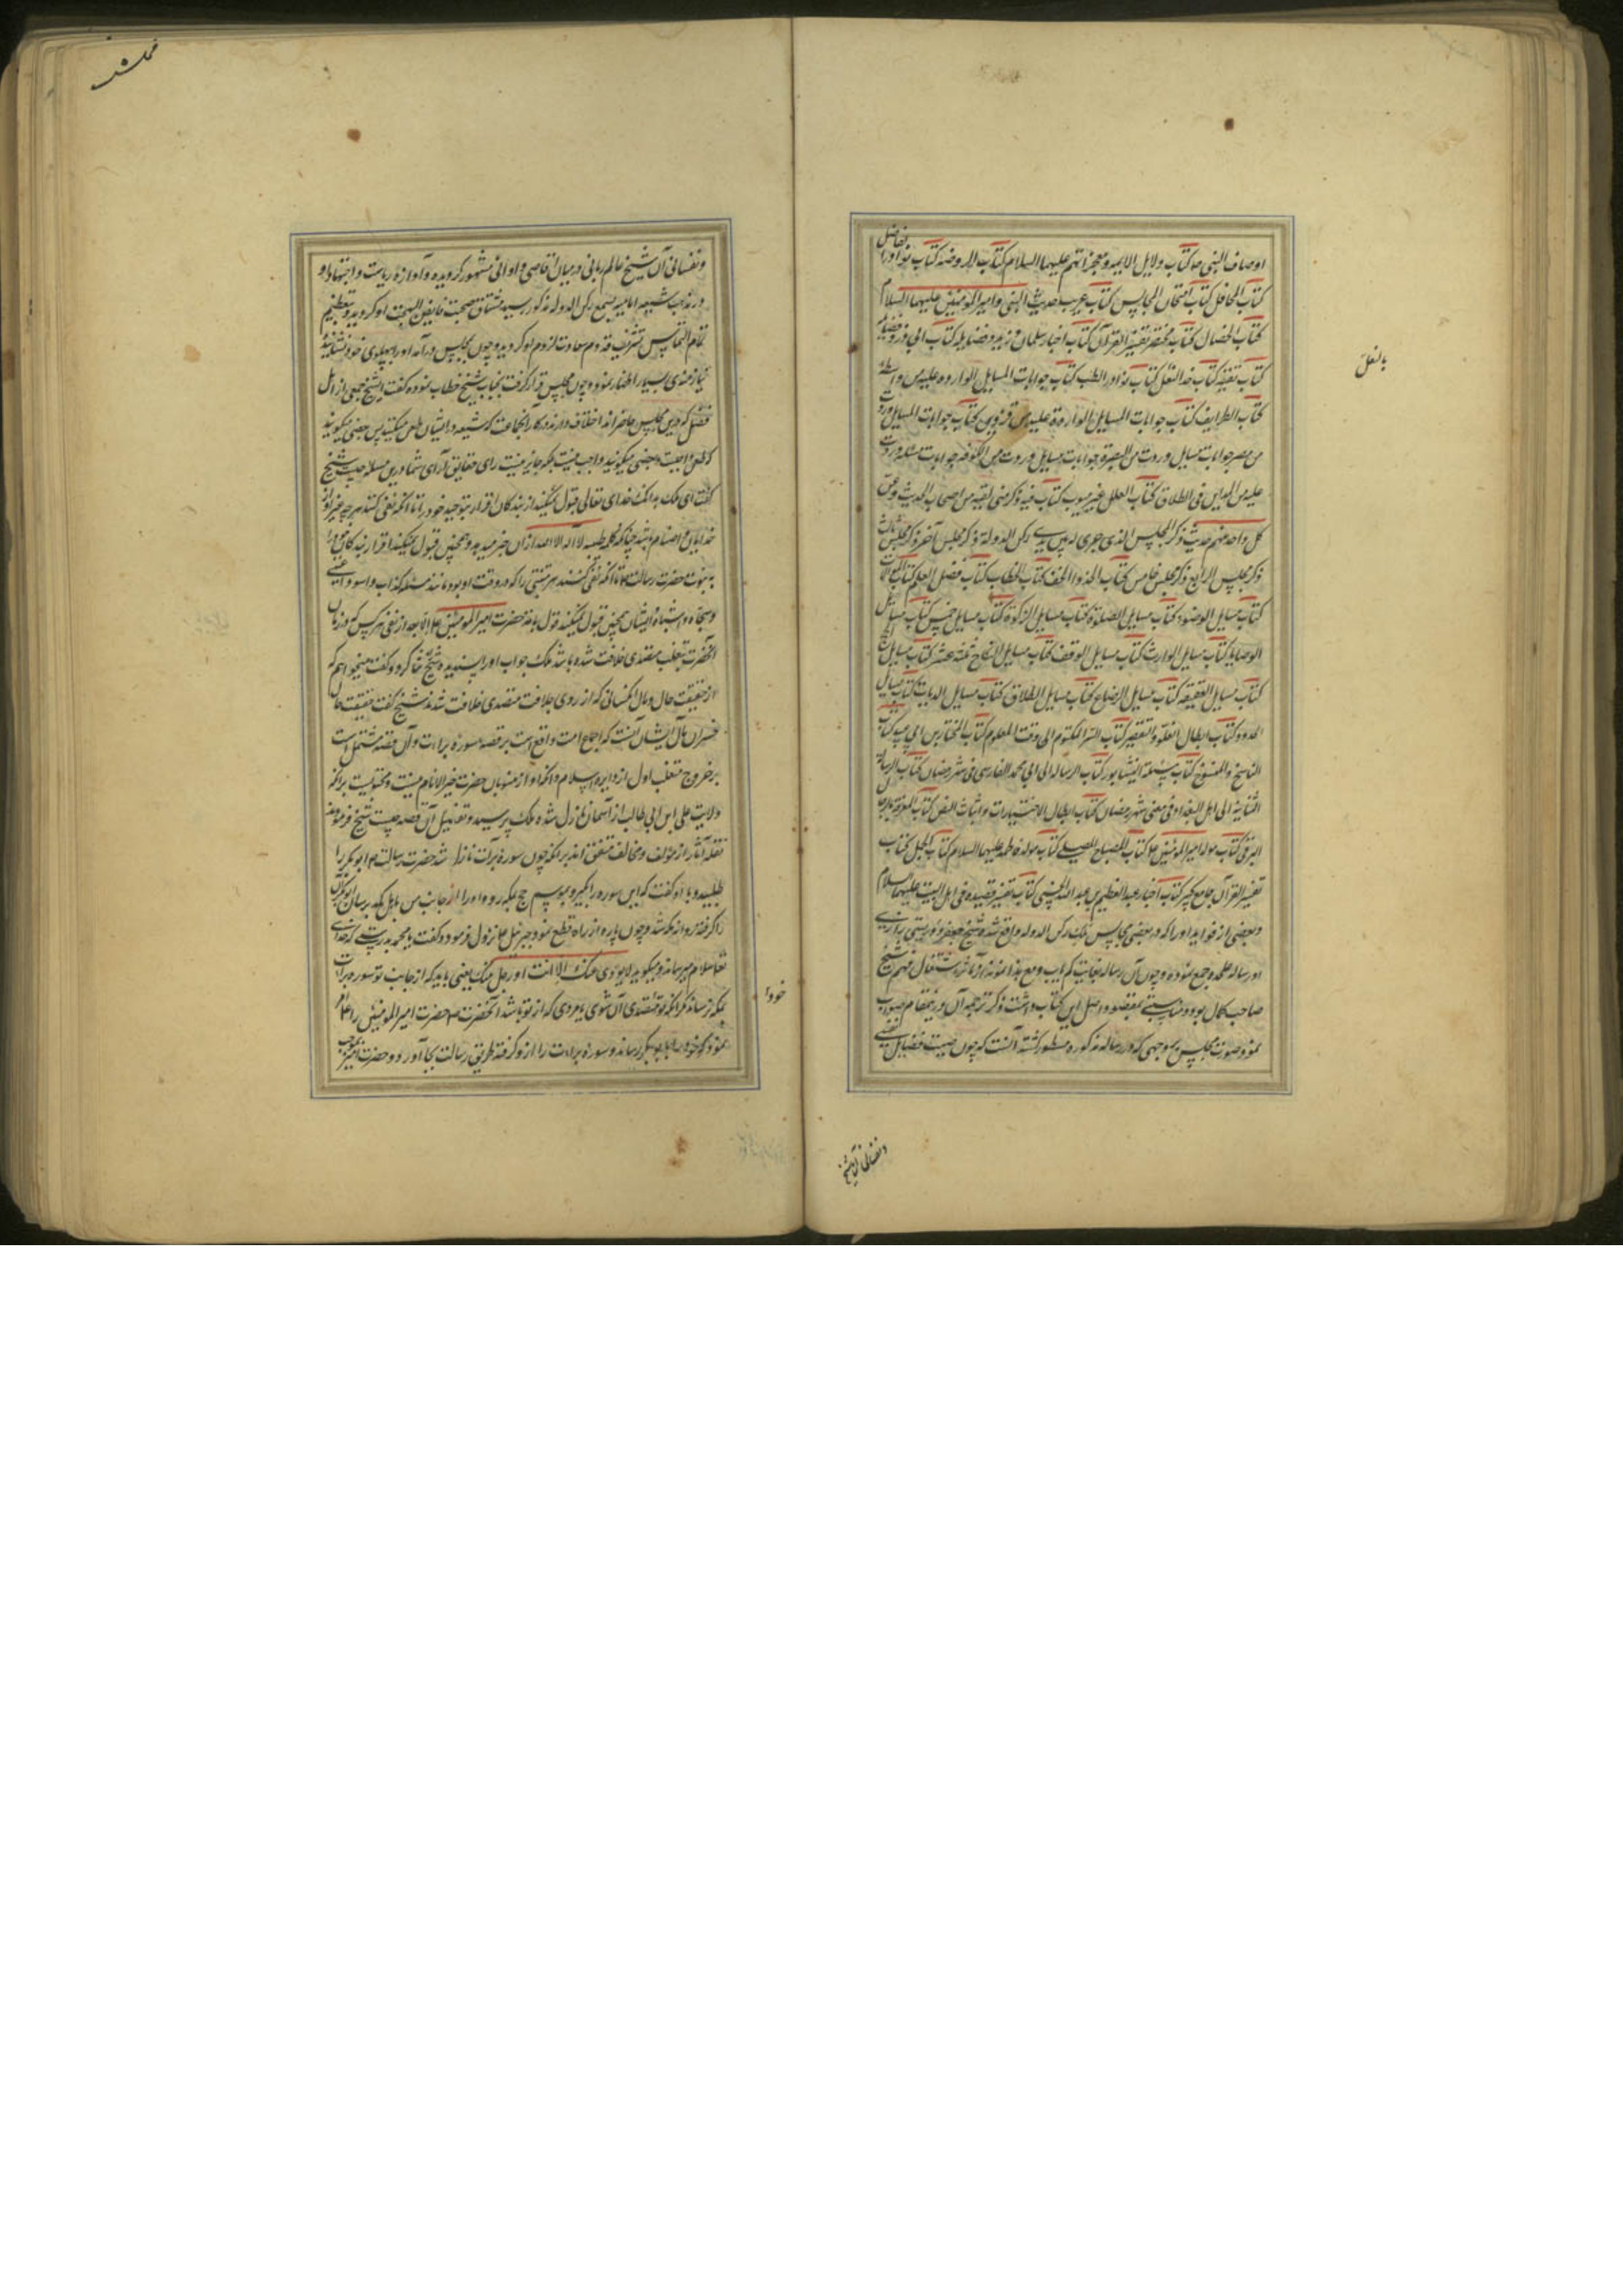 اوصاف النبی ص کتاب دلایل الایمه و معجزاتهم علیهما السلام کتاب الروضه کتاب نوادر
کتاب المحافل کتاب امتحان المجالس کتاب غریب حدیث النبی و امیرالمومنین علیهما السلام
کتاب الخصال کتاب مختصر تفسیر القرآن کتاب اخبار سلمان و زهده و فضایله کتاب ابی ذر و فضایله
کتاب تقیه کتاب حذو النعل کتاب نوادر الطب کتاب جوابات المسایل الوارده علیه من واسط
کتاب الطرایف کتاب جوابات المسایل الواردة علیه من قزوین کتاب جوابات المسایل وردت
من مصر جوابات مسایل وردت من البصره جوابات مسایل وردت من الکوفه جوابات مسئله وردت
علیه من المداین فی الطلاق کتاب العلل غیر مبوب کتاب فیه ذکر من لقیه من اصحاب الحدیث و عن
کل واحد منهم حدیث ذکر المجلس الذی جری له بین یدی رکن الدولة ذکر مجلس آخر ذکر مجلس ثالث
ذکر مجلس الرابع ذکر مجلس خامس کتاب الحذا و الخف کتاب الخطاب کتاب فضل العلم کتاب الموالات
کتاب مسایل الوضو کتاب مسایل الصلوة کتاب مسایل الزکوة کتاب مسایل خمس کتاب مسایل
الوصایا کتاب مسایل الوارث کتاب مسایل الوقف کتاب مسایل النکاح ثلثه عشر کتاب مسایل الحج
کتاب مسایل العقیقه کتاب مسایل الرضاع کتاب مسایل الطلاق کتاب مسایل الدیات کتاب مسایل
الحدود کتاب ابطال الغلو و التقصیر کتاب السر المکتوم الی وقت المعلوم کتاب المختار بن ابی عبید کتاب
الناسخ و المنسوخ کتاب مسئلة النیشابور کتاب الرساله الی ابی محمد الفارسی فی شهر رمضان کتاب الرسالة
الثانیة الی اهل البغداد فی معنی شهر رمضان کتاب ابطال الاختیارات و اثبات النص کتاب المعرفة برجال
البرقی کتاب مولد امیرالمومنین ع کتاب المصباح المصلی کتاب مولد فاطمه علیها السلام کتاب الجمل کتاب
تفسیر القرآن جامع کبیر کتاب اخبار عبدالعظیم بن عبدالله الحسنی کتاب تفسیر قصیده فی اهل البیت علیهم السلام
و بعضی از فواید او را که در بعضی مجالس ملک رکن الدوله واقع شد و شیخ جعفر دوریستی رازی
او رساله علحده جمع نموده و چون آن رساله بغایت کم یاب و مع هذا نمونه از مآثر اشتغال فهم شیخ
صاحب کمال بود و مناسبتی بمقصود اصل این کتاب داشت ذکر ترجمه آن در ینمقام صواب
نمود و صورت مجلس بوجهی که در رساله مذکوره مسطور گشته آنست که چون صیت فضایل نفسی
بالنعل
و نفسانی آن شیخ
و نفسانی آن شیخ عالم ربانی در میان اقاصی و ادانی مشهور گردیده و آوازه ریاست و اجتهاد او
در مذهب شیعه امامیه بسمع رکن الدوله مذکور رسید مشتاق صحبت فایض البهجت او گردید و بتعظیم
تمام التماس تشریف قدوم سعادت لزوم او گردید و چون بمجلس درآمد او را بپهلوی خود نشانید و
نیازمندی بسیار اظهار نمود و چون مجلس قرار گرفت بجناب شیخ خطاب نموده گفت ایشیخ جمعی از اهل
فضل که درین مجلس حاضراند اختلاف دارند در کار آنجماعت که شیعه در ایشان طعن میکنند پس بعضی میگویند
که طعن واجبست و بعضی میگویند واجب نیست بلکه جایز نیست رای حقایق آرای شما درین مسئله چیست شیخ
گفت ای ملک بدانکه خدای تعالی قبول نمیکند از بندگان اقرار بتوحید خود را تا آنکه نفی کنند هر چه غیر او از
خدایان و اصنام باشد چنانکه کلمه طیبه لا آله الا الله از آن خبر میدهد و همچنین قبول نمیکند اقرار بندگان خود را
به نبوت حضرت رسالت ص تا آنکه نفی کنند هر متنبئی را که در وقت او بود مانند مسیلمه کذاب و اسود عنسی
و سجاح و اشباه ایشان همچنین قبول نمیکند قول بامامت حضرت امیرالمومنین ع الا بعد از نفی هر کس که در زمان
آنحضرت بتغلب متصدی خلافت شده باشد ملک جواب او را پسندیده شیخ ثنا کرد و گفت میخواهم که
از حقیقت حال و مآل کسانی که از روی خلافت متصدی خلافت شدند شیخ گفت حقیقت حال
خسران مآل ایشان آنست که اجماع امت واقع است بر قصه سوره براءت و آن قصه مشتمل است
بر خروج متغلب اول از دایره اسلام و آنکه او از منسوبان حضرت خیرالانام نیست و محتویست برآنکه
ولایت علی ابن ابی طالب از آسمان نازل شده ملک پرسید و تفصیل آن قصه چیست شیخ فرمودند
نقله آثار از مؤلف و مخالف متفق اند برآنکه چون سوره برأت نازل شد حضرت رسالت ص ابوبکر را
طلبید و با او گفت که این سوره را بگیر و بموسم حج بمکه رو و او را از جانب من باهل مکه برسان ابوبکر آن
را گرفته روانه مکه شد و چون پاره از راه قطع نمود جبرئیل ع نزول فرمود و گفت یا محمد بدرستی که خدای
تعا سلام میرساند و میگوید لا یودی عنک الا انت او رجل منک یعنی باید که از جانب تو سوره برات
بمکه نرساند مگر آنکه تو متصدی آن شوی یا مردی که از تو باشد آنحضرت ص حضرت امیرالمومنین را ع امر
نمود که خود را بابوبکر رساند و سوره براءت را ازو گرفته طریق رسالت بجا آورد و حضرت امیر بموجب
خود را